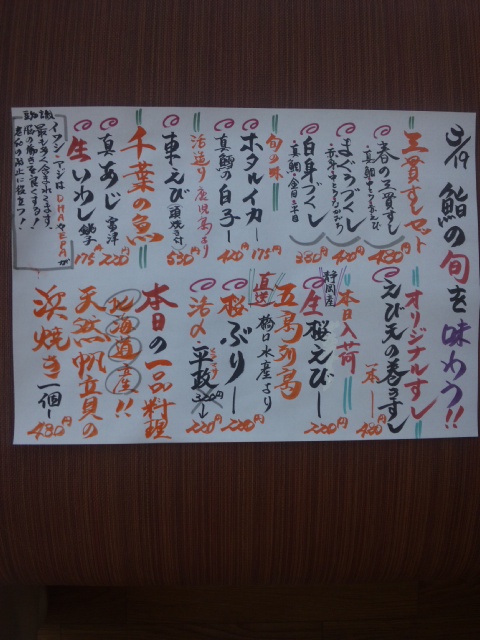 3/19 鮨の旬を味わう!!
三貫すしセット
春の三貫すし 480円
まぐろづくし 480円
白身づくし 380円
真鯛・金目・平目
旬の味
ホタルイカー 175円
真鱈の白子ー 420円
活造り 鹿児島より
車えび(頭焼き付) 530円
千葉の魚
真あじ 富津 220円
生いわし 銚子 175円
豆知識
イワシ・アジはDHAやEPAが
最も多く含まれてます。
脳の働きを良くする!
老化の防止に役立つ!
オリジナルすし
えび天の巻きずし
一本ー 480円
本日入荷
静岡産
生桜えびー 220円
五島列島
直送 橋口水産より
桜ぶりー 220円
活〆平政ー 220円
本日の一品料理
北海道産!!
天然帆立貝の
浜焼き 一個ー 480円